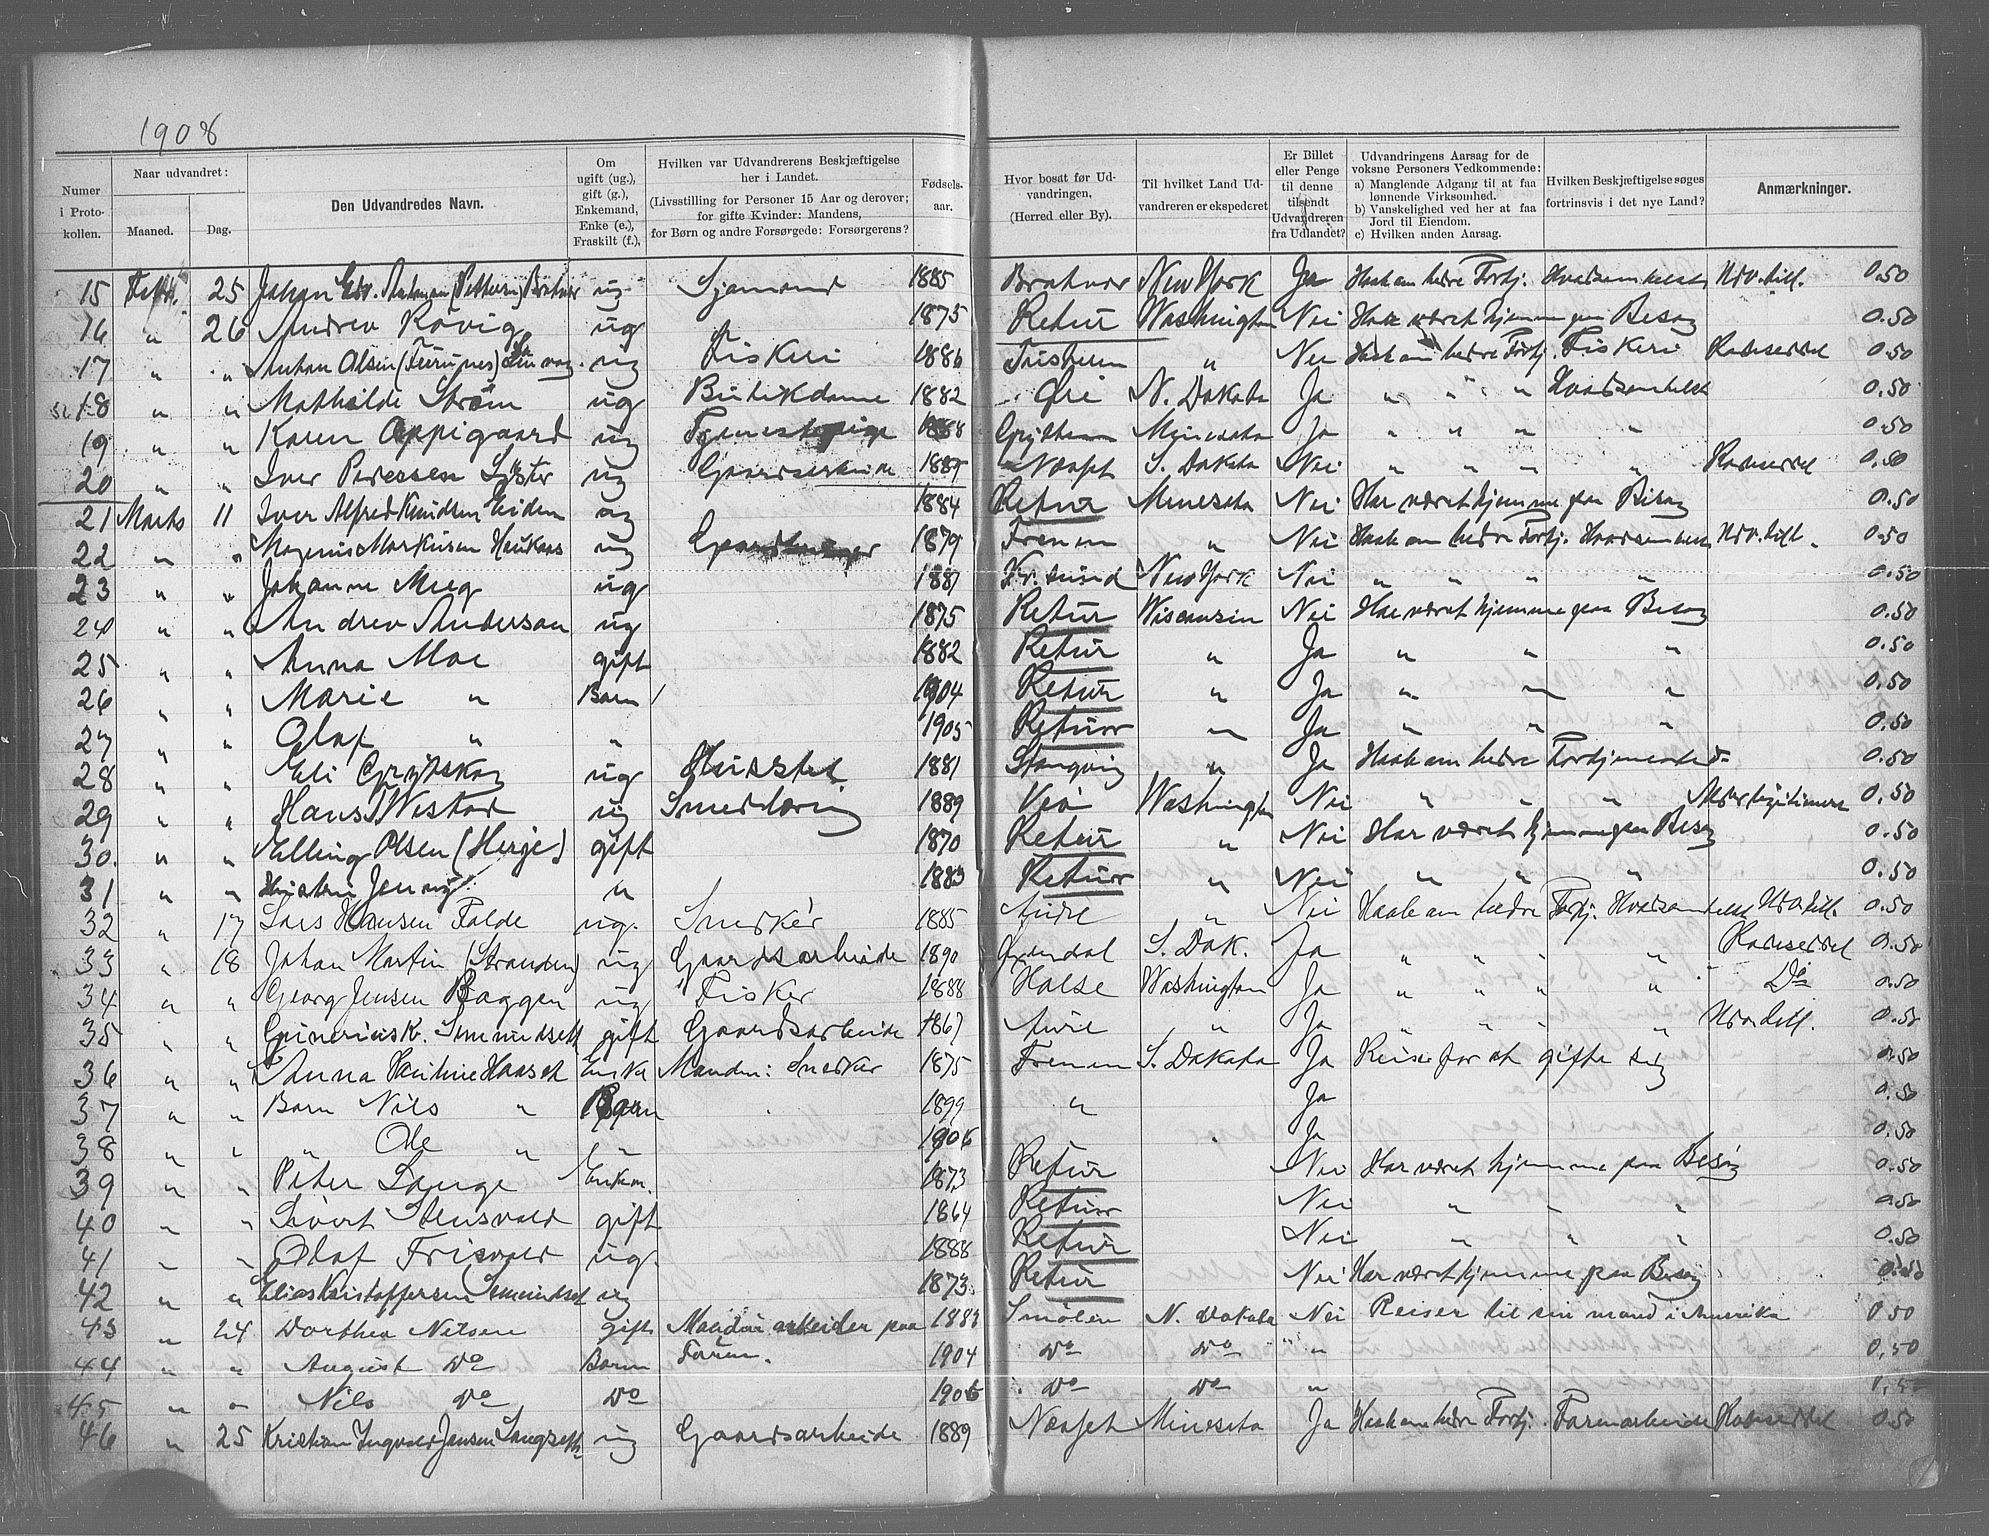 1908
Numer i Protokollen.
Naar udvandret:
Maaned.
Dag.
Den Udvandredes Navn.
Om ugift (ug.), gift (g.), Enkemand, Enke (e.), Fraskilt (f.),
Hvilken var Udvandrerens Beskjæftigelse her i Landet.
(Livsstilling for Personer 15 Aar og derover; for gifte Kvinder: Mandens, for Børn og andre Forsørgede: Forsørgerens?
Fødselsaar.
Hvor bosat før Udvandringen, (Herred eller By).
Til hvilket Land Udvandreren er ekspederet
Er Billet eller Penge til denne tilsendt Udvandreren fra Udlandet?
Udvandringens Aarsag for de voksne Personers Vedkommende:
a) Manglende Adgang til at faa lønnende Virksomhed.
b) Vanskelighed ved her at faa Jord til Eiendom.
c) Hvilken anden Aarsag.
Hvilken Beskjæftigelse søges fortrinsvis i det nye Land?
Anmærkninger.
15 25 Johan Edv. ug Sjømand 1885 Bratvær New York Ja Haab om bedre Fortj. Udv. till. 0.50
16 " 26 Andrew Røvig ug 1875 Retur Washington Nei Har været hjemme paa Besøg 0.50
17 " " Anton Olsen ug Fiskeri 1886 " Nei Haab om bedre Fortj. Fiskeri Rødseddel 0.50
18 " " Mathilde Strøm ug Butikdame 1882 Øre N. Dakota Ja " " " Hvadsomhelst 0.50
19 " " Karen Oppigaard ug Tjenestepige 1888 Minesota Ja " " " " 0.50
20 " " Iver Pedersen ug Gaardsarbeide Næsset S. Dakota Nei " " " " Rødseddel 0.50
21 Marts 11 Iver Alfred Knudsen Eiden ug 1884 Retur Minesota Nei Har været hjemme paa Besøg 0.50
22 " " Magnus Markusen ug 1879 Frænen " Nei Haab om bedre Fortj. Hvadsomhelst Udv. till. 0.50
23 " " Johanne ug 1881 Kr. sund New York Nei " " " " 0.50
24 " " Andrew Anderson ug 1875 Retur Wisconsin Nei Har været hjemme paa Besøg 0.50
25 " " Anna Moe gift 1882 Retur " Ja " " " 0.50
26 " " Marie " Barn 1904 Retur " Ja " " " 0.50
27 " " Olaf " " 1905 Retur " Ja " " " 0.50
28 " " Eli ug 1881 Stangvig " Ja Haab om bedre Fortjeneste 0.50
29 " " Hans Westad ug Smedlæring 1889 Veø Washington Nei " " " 0.50
30 " " Elling Olsen ( gift 1870 Retur " Nei Har været hjemme paa Besøg 0.50
31 " " Jenny " 1883 Retur " Nei " " " 0.50
32 " 17 Lars Hansen Folde ug. Snedker 1885 Aure " Nei Haab om bedre Fortj. Hvadsomhelst Udv. till. 0.50
33 " 18 Johan Martin (Stranden) ug Gaardsarbeide 1890 Øxendal S. Dak. Ja " " " " Rødseddel 0.50
34 " " Georg Jensen Baggen ug Fisker 1888 Halse Washington Ja " " " " Do 0.50
35 " " gift Gaardsarbeide 1867 Aure " Ja " " " " Udv. till. 0.50
36 " " Anna Enke Manden: Snedker 1875 Frænen S. Dakota Ja Reise for at gifte sig 0.50
37 " " Barn Nils " Barn 1899 " Ja 0.50
38 " " " Ole " " Ja 0.50
39 " " Peter Lange Enkem. 1873 Retur Nei Har været hjemme paa Besøg 0.50
40 " " Sivert Stensvold gift 1864 Retur Nei " " " 0.50
41 " " Olaf Frisvold ug. 1888 Retur Nei " " " 0.50
42 " " Elias Kristoffersen ug 1873 Retur Nei Har været hjemme paa Besøg 0.50
43 " 24 Dorthea Nilsen gift Manden arbeider paa Farm. Smølen N. Dakota Nei Reiser til sin mand i Amerika 0.50
44 " " August Do Barn 1904 Do Do " 0.50
45 " " Nils Do Do Do Do " 0.50
46 " 25 Kristian Ingvald Jensen Langseth ug Gaardsarbeide 1889 Næsset Minesota Ja Haab om bedre Fortj. Farmarbeide Rødseddel 0.50